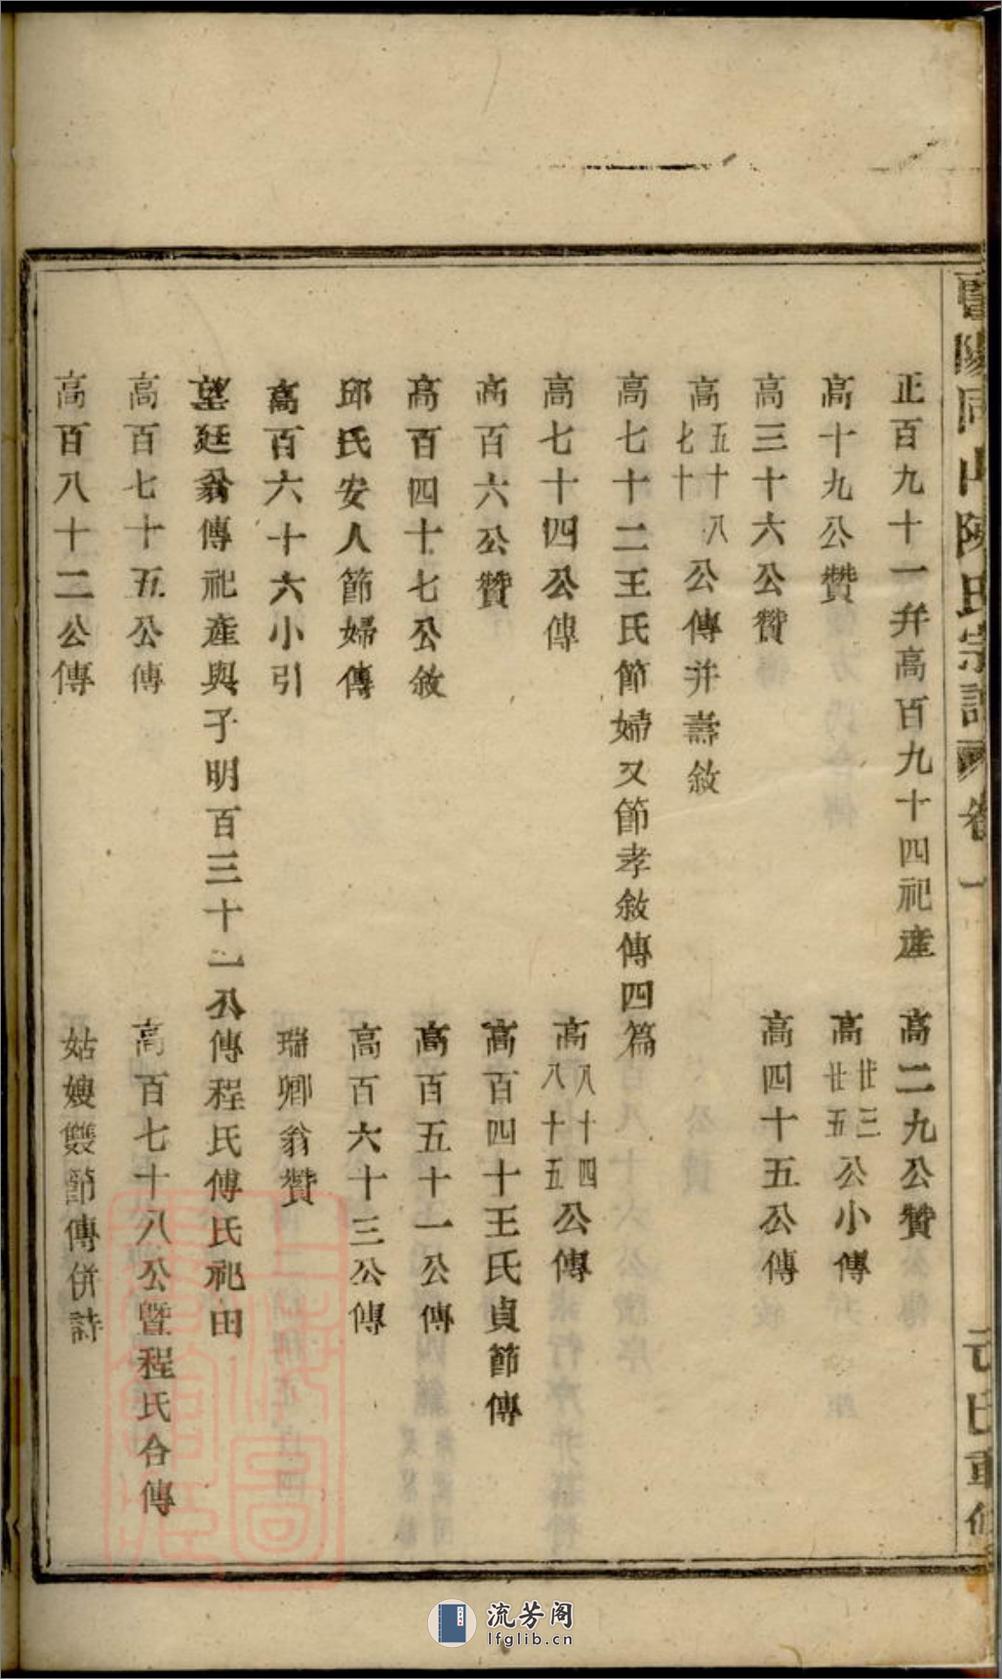 陽同山陳氏宗譜 卷一 民重修
正百九十一幷高百九十四祀產 高二九公贊
高十九公贊 高廿三廿五公小傳
高三十六公贊 高四十五公傳
高五十八七十公傳并壽敘
高七十二王氏節婦又節孝敘傳四篇
高七十四公傳 高八十四八十五公傳
高百六公贊 高百四十王氏貞節傳
高百四十七公敘 高百五十一公傳
邱氏安人節婦傳 高百六十三公傳
高百六十六小引 瑞卿翁贊
望廷翁傳祀產與子明百三十二公傳程氏傅氏祀田
高百七十五公傳 高百七十八公暨程氏合傳
高百八十二公傳 姑嫂雙節傳併詩
流芳阁
lfglib.cn